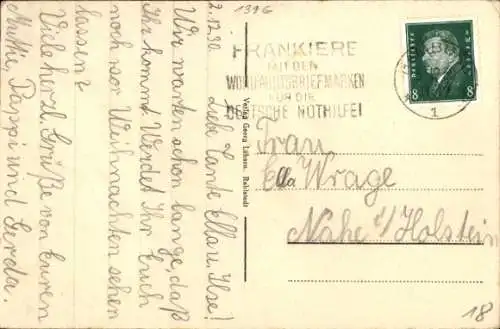 139G
2.12.30.
Liebe Tante Ella u. Ilse!
Wir warten schon lange, daß
Ihr kommt. Werdet Ihr Euch
noch vor Weihnachten sehen
lassen?
Viele herzl. Grüße von Euren
Mutti, Pappi und Gerda.
Verlag Georg Lührs, Rahlstedt
FRANKIERE
MIT DEN
WOHLFAHRTSBRIEFMARKEN
FÜR DIE
DEUTSCHE NOTHILFE!
1
8 8
Frau
Ella Wrage
Nahe i/Holstein
18